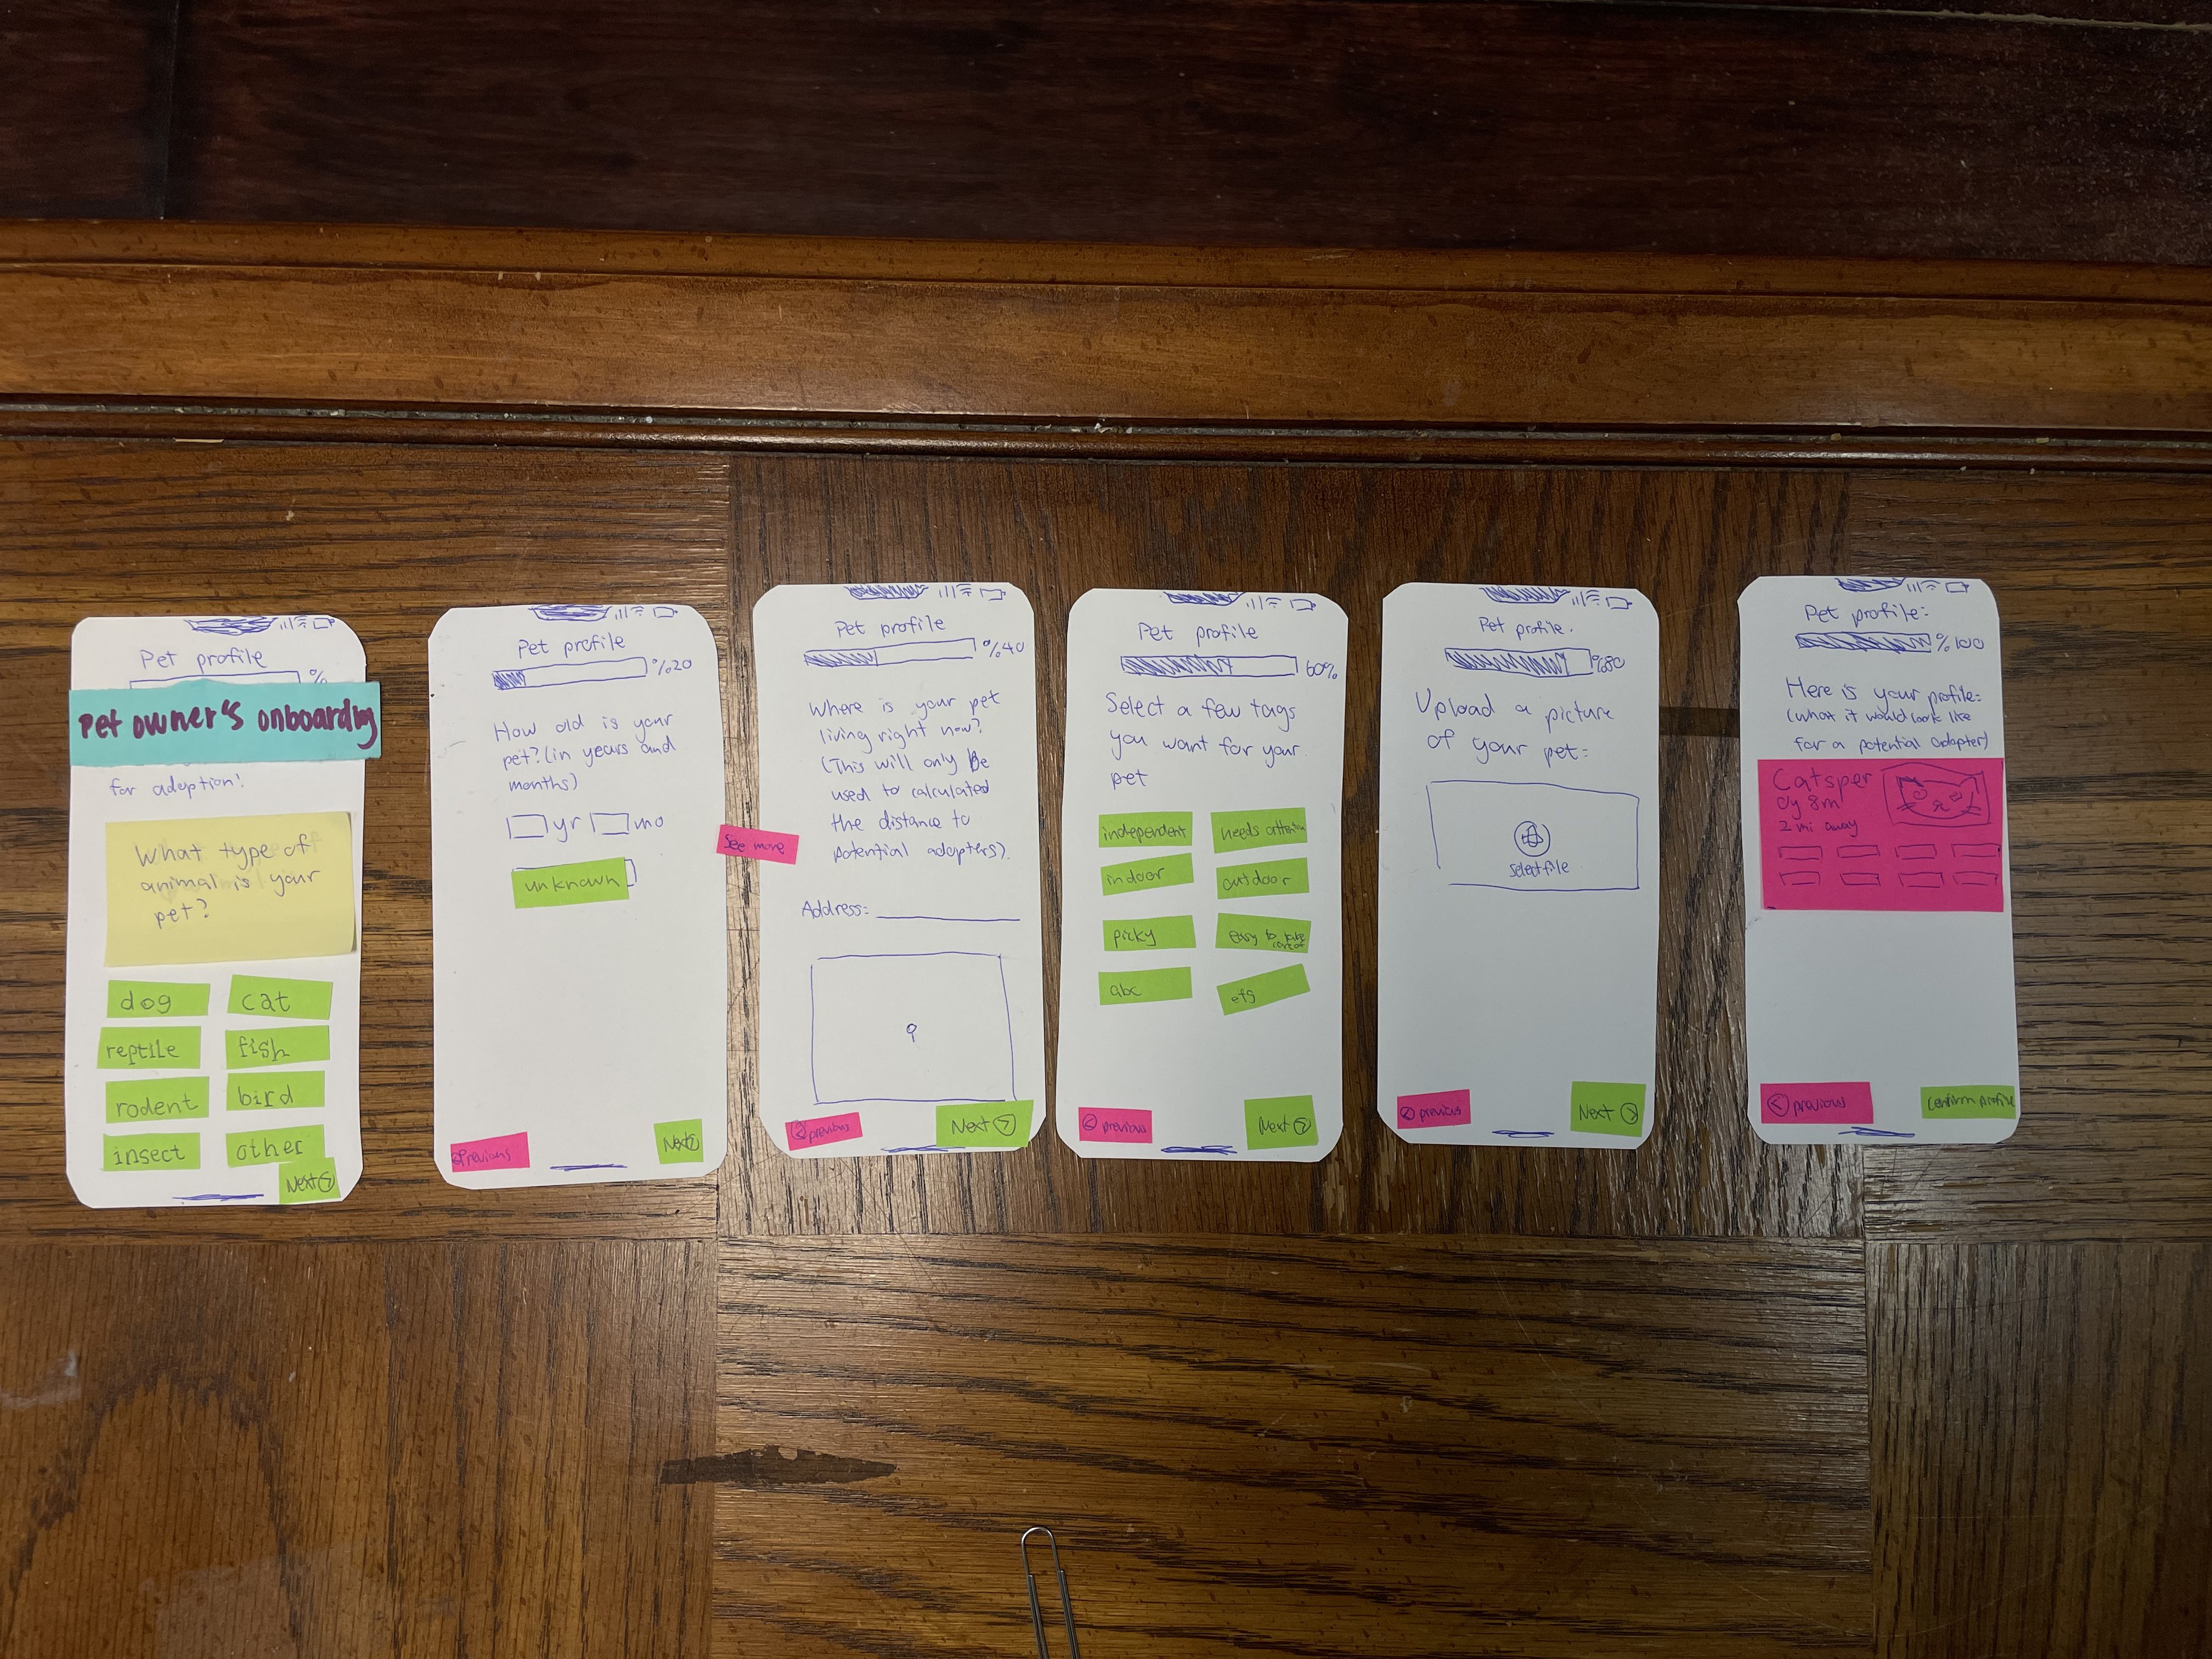 Pet profile
%
Pet owner's onboarding
for adoption!
What type of
animal is your
pet?
dog
cat
reptile
fish
rodent
bird
insect
other
Next
Pet profile
%20
How old is your
pet? (in years and
months)
yr
mo
unknown
Previous
Next
See more
Pet profile
%40
Where is your pet
living right now?
(This will only Be
used to calculated
the distance to
potential adopters).
Address:
previous
Next
Pet profile
60%
Select a few tags
you want for your
pet
independent
needs attention
indoor
outdoor
picky
easy to take
care of
abc
efg
previous
Next
Pet profile.
%80
Upload a picture
of your pet:
select file
previous
Next
Pet profile:
%100
Here is your profile:
(what it would look like
for a potential adopter)
Catsper
0y 8m
2 mi away
previous
Confirm profile